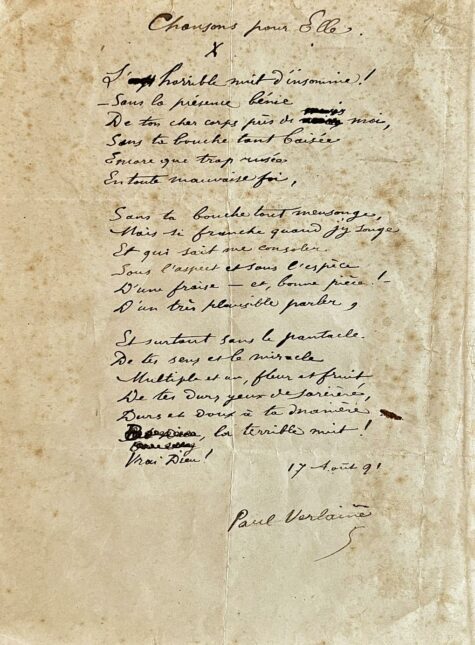 Chansons pour Elle.
X
L' horrible nuit d'insomnie!
— Sans la présence bénie
De ton cher corps près de moi,
Sans ta bouche tant baisée
Encore que trop rusée
En toute mauvaise foi,
Sans ta bouche tout mensonge,
Mais si franche quand j'y songe
Et qui sait me consoler
Sous l'aspect et sous l'espèce
D'une fraise — et, bonne pièce! —
D'un très plausible parler,
Et surtout sans le pantacle
De tes sens et le miracle
Multiple et un, fleur et fruit
De tes durs yeux de sorcière,
Durs et doux à ta manière
, la terrible nuit!
Vrai Dieu!
17 Août 91
Paul Verlaine